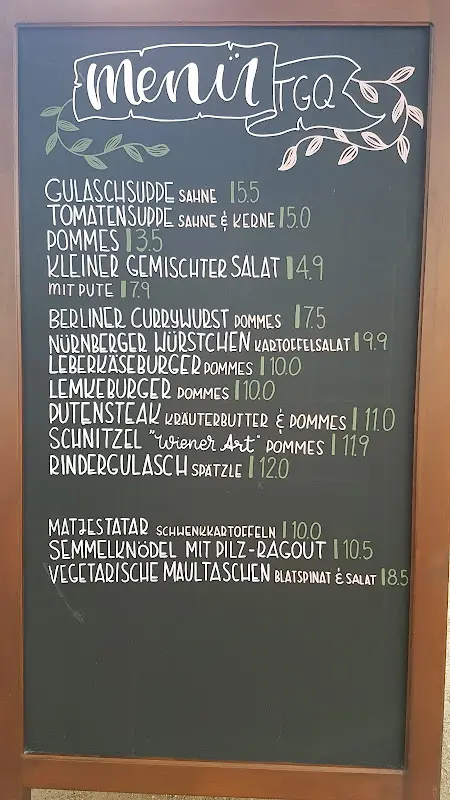 menü TGQ
GULASCHSUPPE SAHNE | 5.5
TOMATENSUPPE SAHNE & KERNE | 5.0
POMMES | 3.5
KLEINER GEMISCHTER SALAT | 4.9
MIT PUTE | 7.9
BERLINER CURRYWURST POMMES | 7.5
NÜRNBERGER WÜRSTCHEN KARTOFFELSALAT | 9.9
LEBERKÄSEBURGER POMMES | 10.0
LEMKEBURGER POMMES | 10.0
PUTENSTEAK KRÄUTERBUTTER & POMMES | 11.0
SCHNITZEL "Wiener Art" POMMES | 11.9
RINDERGULASCH SPÄTZLE | 12.0
MATJESTATAR SCHWENKKARTOFFELN | 10.0
SEMMELKNÖDEL MIT PILZ-RAGOUT | 10.5
VEGETARISCHE MAULTASCHEN BLATSPINAT & SALAT | 8.5